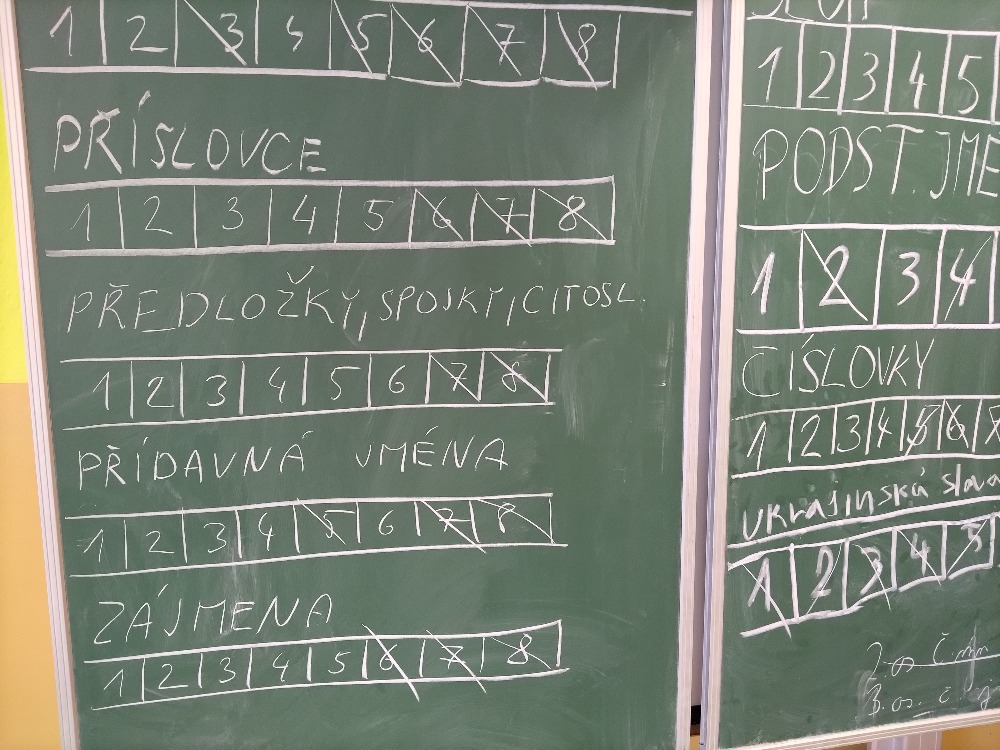 1 2 3 4 5 6 7 8
PŘÍSLOVCE
1 2 3 4 5 6 7 8
PŘEDLOŽKY, SPOJKY, CITOSL.
1 2 3 4 5 6 7 8
PŘÍDAVNÁ JMÉNA
1 2 3 4 5 6 7 8
ZÁJMENA
1 2 3 4 5 6 7 8
1 2 3 4 5
PODST. JMÉ
1 2 3 4
ČÍSLOVKY
1 2 3 4 5 6
ukrajinská slova
1 2 3 4 5
2. os. č. mn
3. os. č. j